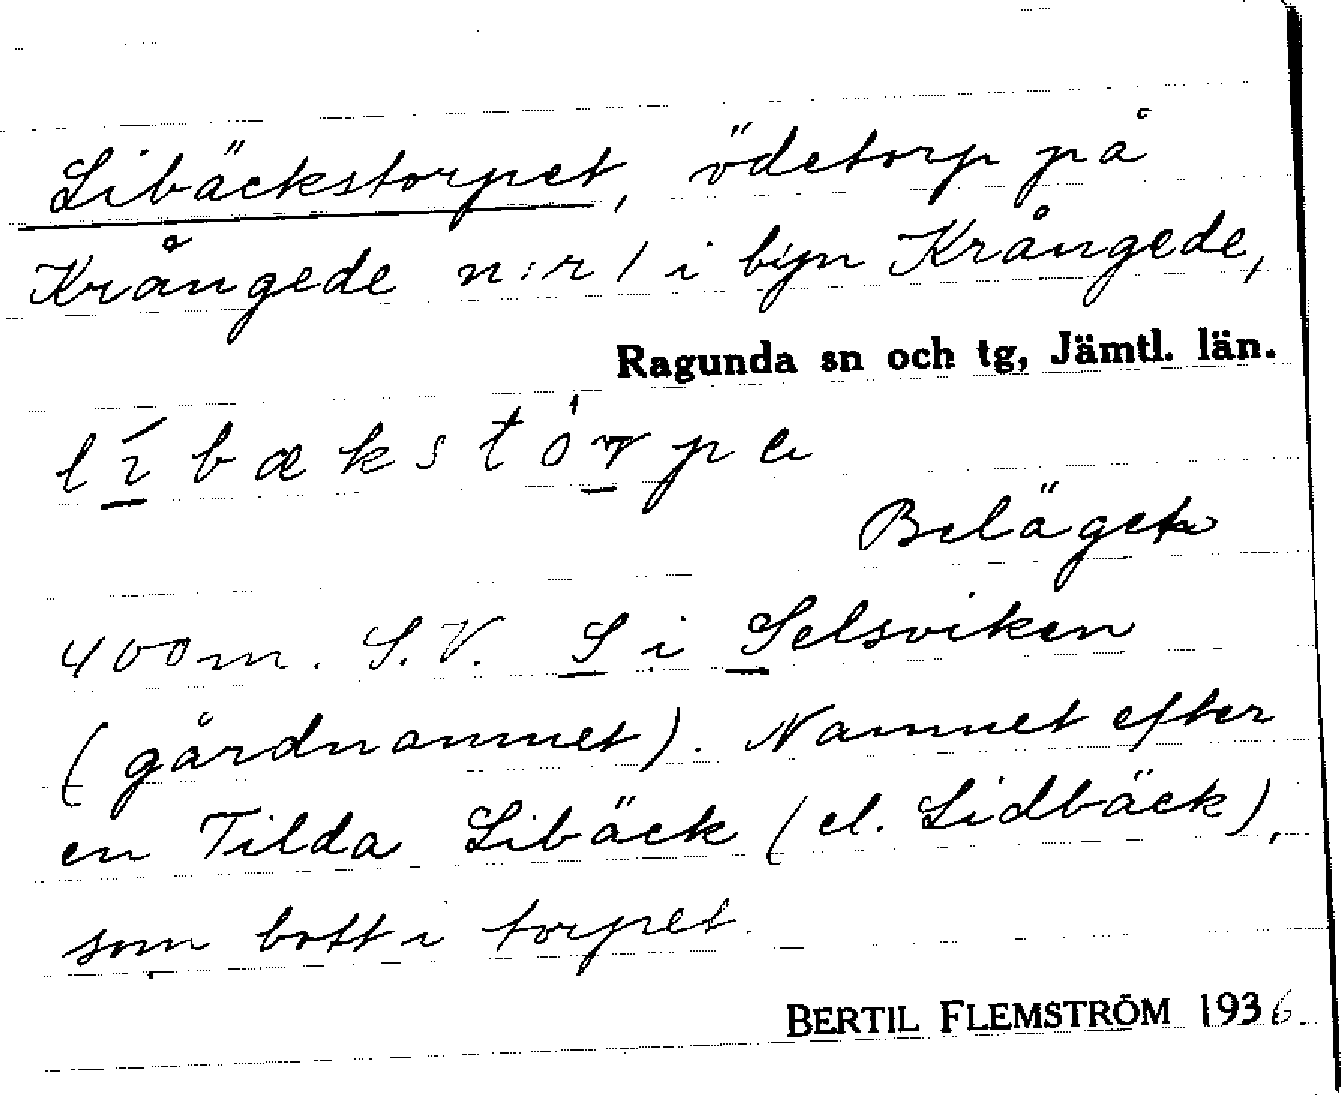 Libäckstorpet, ödetorp på
Krångede n:r 1 i byn Krångede,
Ragunda sn och tg, Jämtl. län.
líbækstórpa
Beläget
400 m. S.V. S i Selsviken
(gårdnamnet). Namnet efter
en Tilda Libäck (el. Lidbäck),
som bott i torpet.
BERTIL FLEMSTRÖM 1936.